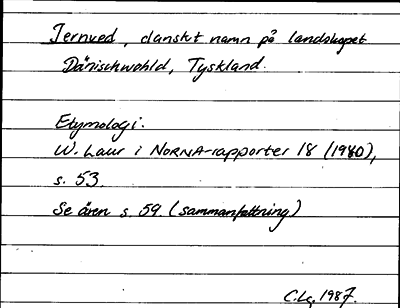 Jernved, danskt namn på landskapet
Dänischwohld, Tyskland.
Etymologi:
W. Laur i NORNA-rapporter 18 (1980),
s. 53.
Se även s. 59. (sammanfattning)
C.Lg. 1987.